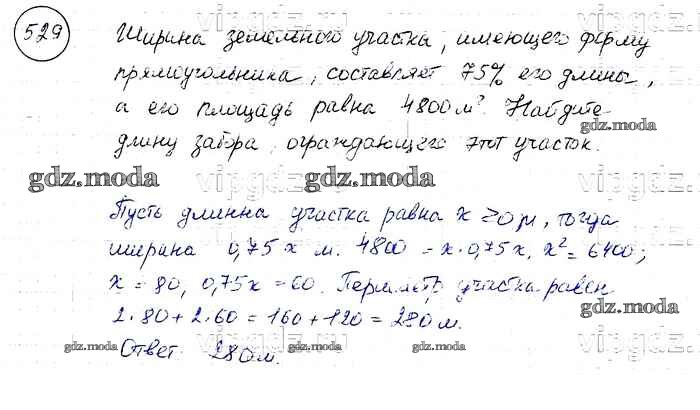 529
Ширина земельного участка, имеющего форму
прямоугольника, составляет 75% его длины,
а его площадь равна 4800 м². Найдите
длину забора, ограждающего этот участок.
gdz.moda gdz.moda gdz.moda
Пусть длинна участка равна x >0 м, тогда
ширина 0,75x м. 4800 = x·0,75x, x² = 6400;
x = 80, 0,75x = 60. Периметр участка равен
gdz.moda
2·80 + 2·60 = 160 + 120 = 280 м.
gdz.moda gdz.moda gdz.moda
Ответ 280 м.